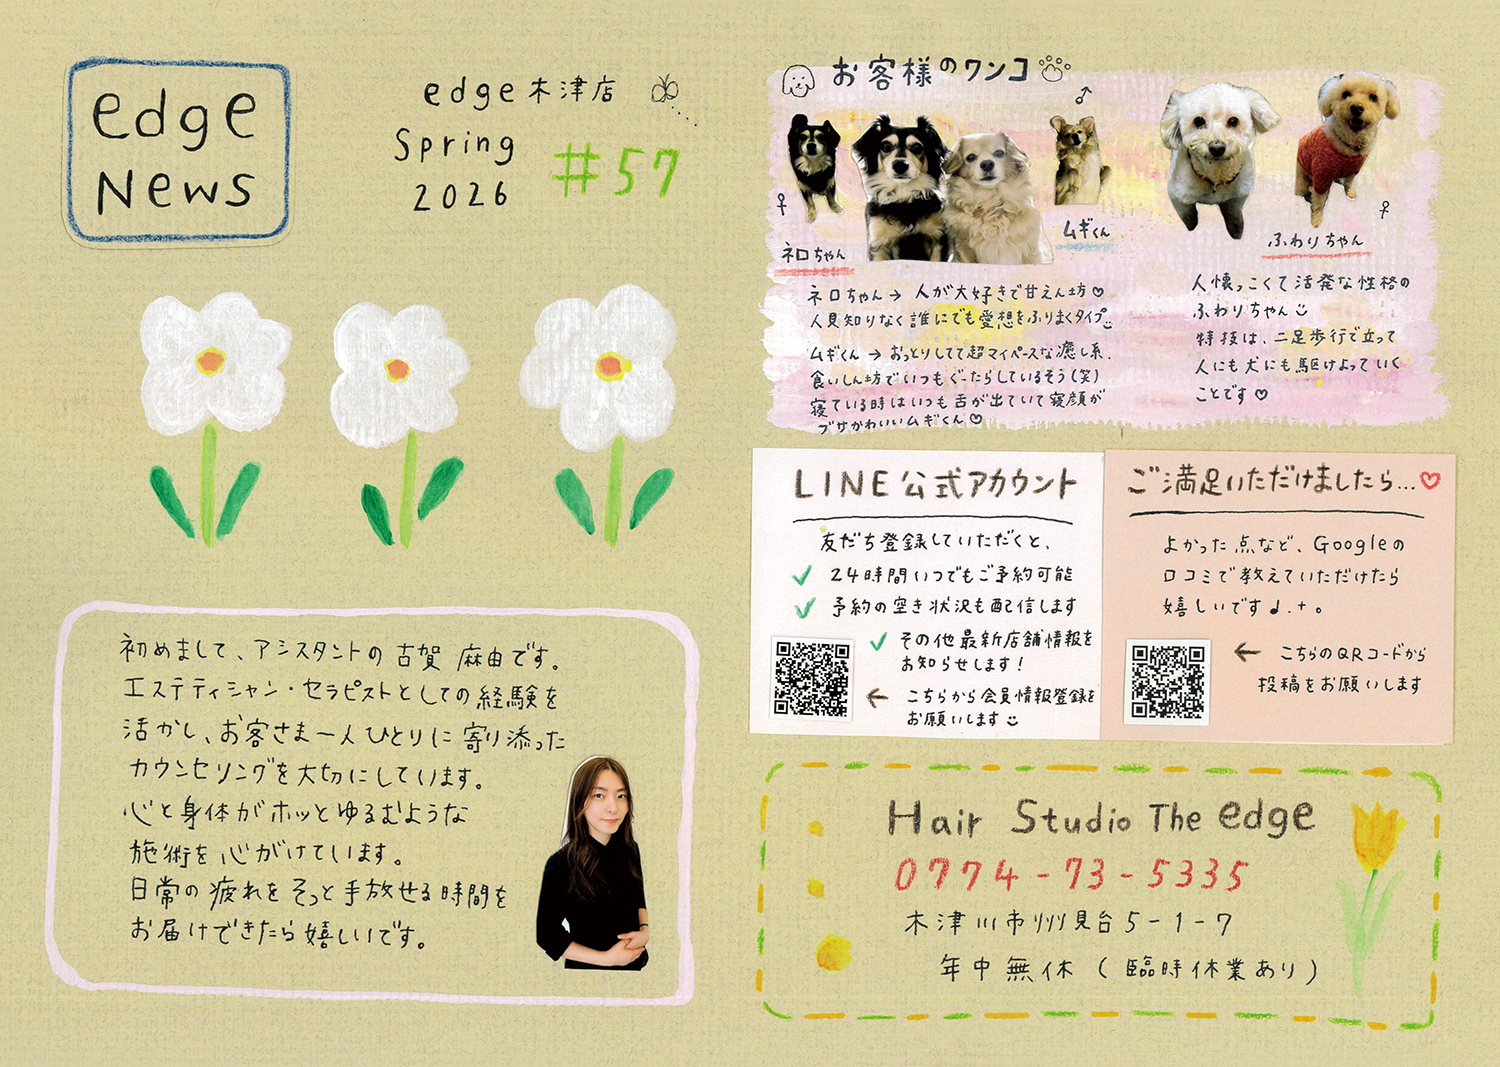 edge
News
edge 木津店
Spring
2026
#57
初めまして、アシスタントの古賀 麻由です。
エステティシャン・セラピストとしての経験を
活かし、お客さま一人ひとりに寄り添った
カウンセリングを大切にしています。
心と身体がホッとゆるむような
施術を心がけています。
日常の疲れをそっと手放せる時間を
お届けできたら嬉しいです。
お客様のワンコ
♂
♀
ネロちゃん
ムギくん
ふわりちゃん
♀
ネロちゃん→人が大好きで甘えん坊♡
人見知りなく誰にでも愛想をふりまくタイプ
ムギくん→おっとりしてて超マイペースな癒し系、
食いしん坊でいつもぐーたらしているそう(笑)
寝ている時はいつも舌が出ていて寝顔が
ブサかわいいムギくん♡
人懐っこくて活発な性格の
ふわりちゃん
特技は、二足歩行で立って
人にも犬にも駆けよっていく
ことです♡
LINE公式アカウント
友だち登録していただくと、
✓ 24時間いつでもご予約可能
✓ 予約の空き状況も配信します
✓ その他最新店舗情報を
お知らせします!
← こちらから会員情報登録を
お願いします
ご満足いただけましたら...♡
よかった点など、Googleの
口コミで教えていただけたら
嬉しいです♩.+。
← こちらのQRコードから
投稿をお願いします
Hair Studio The edge
0774-73-5335
木津川市州見台5-1-7
年中無休(臨時休業あり)